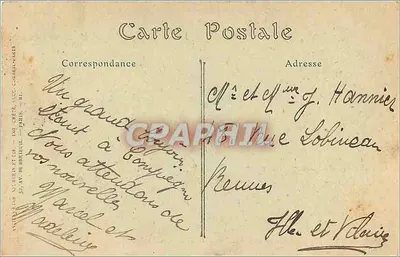 Carte Postale
Correspondance
Adresse
Un grand bonjour.
étant à Compiègne
Nous attendons de
vos nouvelles
Marcel et
Madeleine
Mr et Mme J. Hannier
15 Rue Lobineau
Rennes
Ille et Vilaine
CPAPHIL